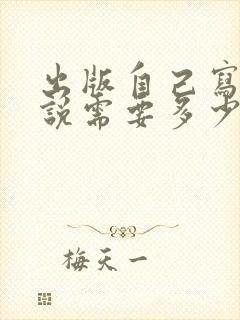 出版自己寫
說需要多少
梅天一